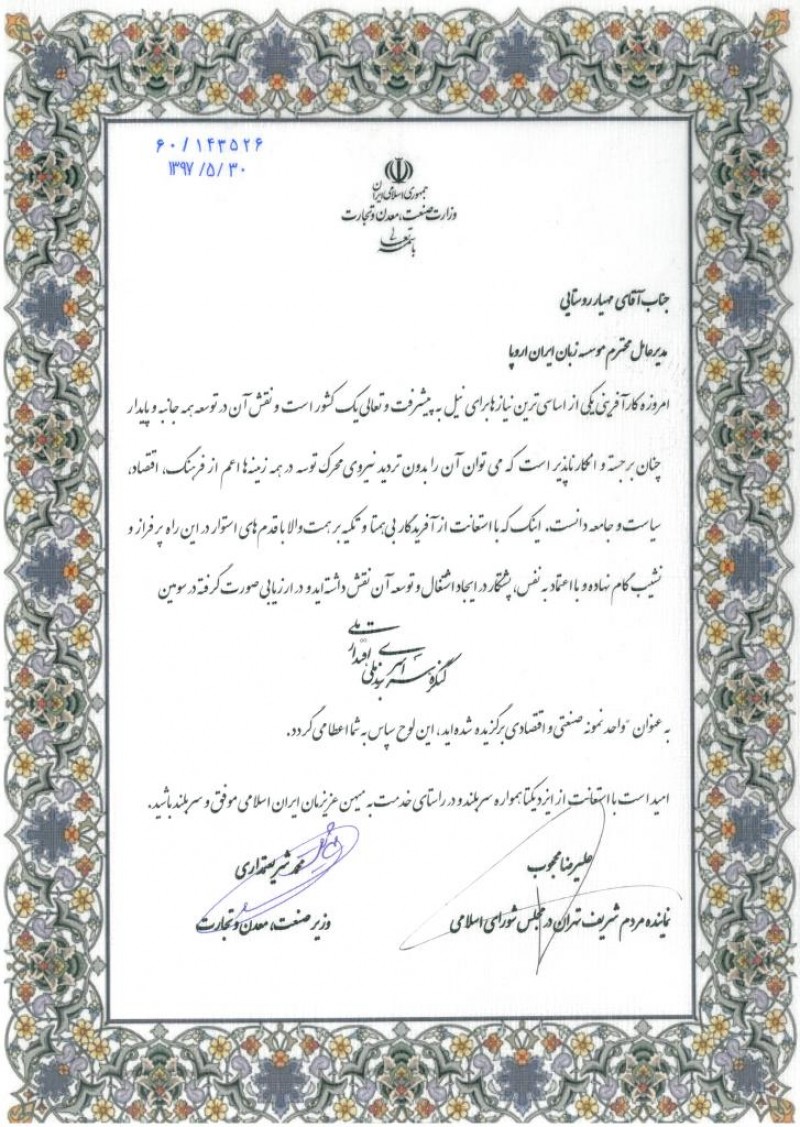 ۶۰/۱۴۳۵۲۶
۱۳۹۷/۵/۳۰
جمهوری اسلامی ایران
وزارت صنعت، معدن و تجارت
باسمه تعالی
جناب آقای مهیار روستایی
مدیرعامل محترم موسسه زبان ایران اروپا
امروزه کارآفرینی یکی از اساسی ترین نیازها برای نیل به پیشرفت و تعالی یک کشور است و نقش آن در توسعه همه جانبه و پایدار
چنان برجسته و انکارناپذیر است که می توان آن را بدون تردید نیروی محرک توسه در همه زمینه ها اعم از فرهنگ، اقتصاد،
سیاست و جامعه دانست. اینک که با استعانت از آفریدگار بی همتا و تکیه بر همت والا با قدم های استوار در این راه پر فراز و
نشیب گام نهاده و با اعتماد به نفس، پشتکار در ایجاد اشتغال و توسعه آن نقش داشته اید و در ارزیابی صورت گرفته در سومین
کنگره سراسری اقتدار ملی
به عنوان "واحد نمونه صنعتی و اقتصادی برگزیده شده اید، این لوح سپاس به شما اعطا می گردد.
امید است با استعانت از ایزد یکتا همواره سربلند و در راستای خدمت به میهن عزیزمان ایران اسلامی موفق و سربلند باشید.
علیرضا محجوب
محمد شریعتمداری
نماینده مردم شریف تهران در مجلس شورای اسلامی
وزیر صنعت، معدن و تجارت